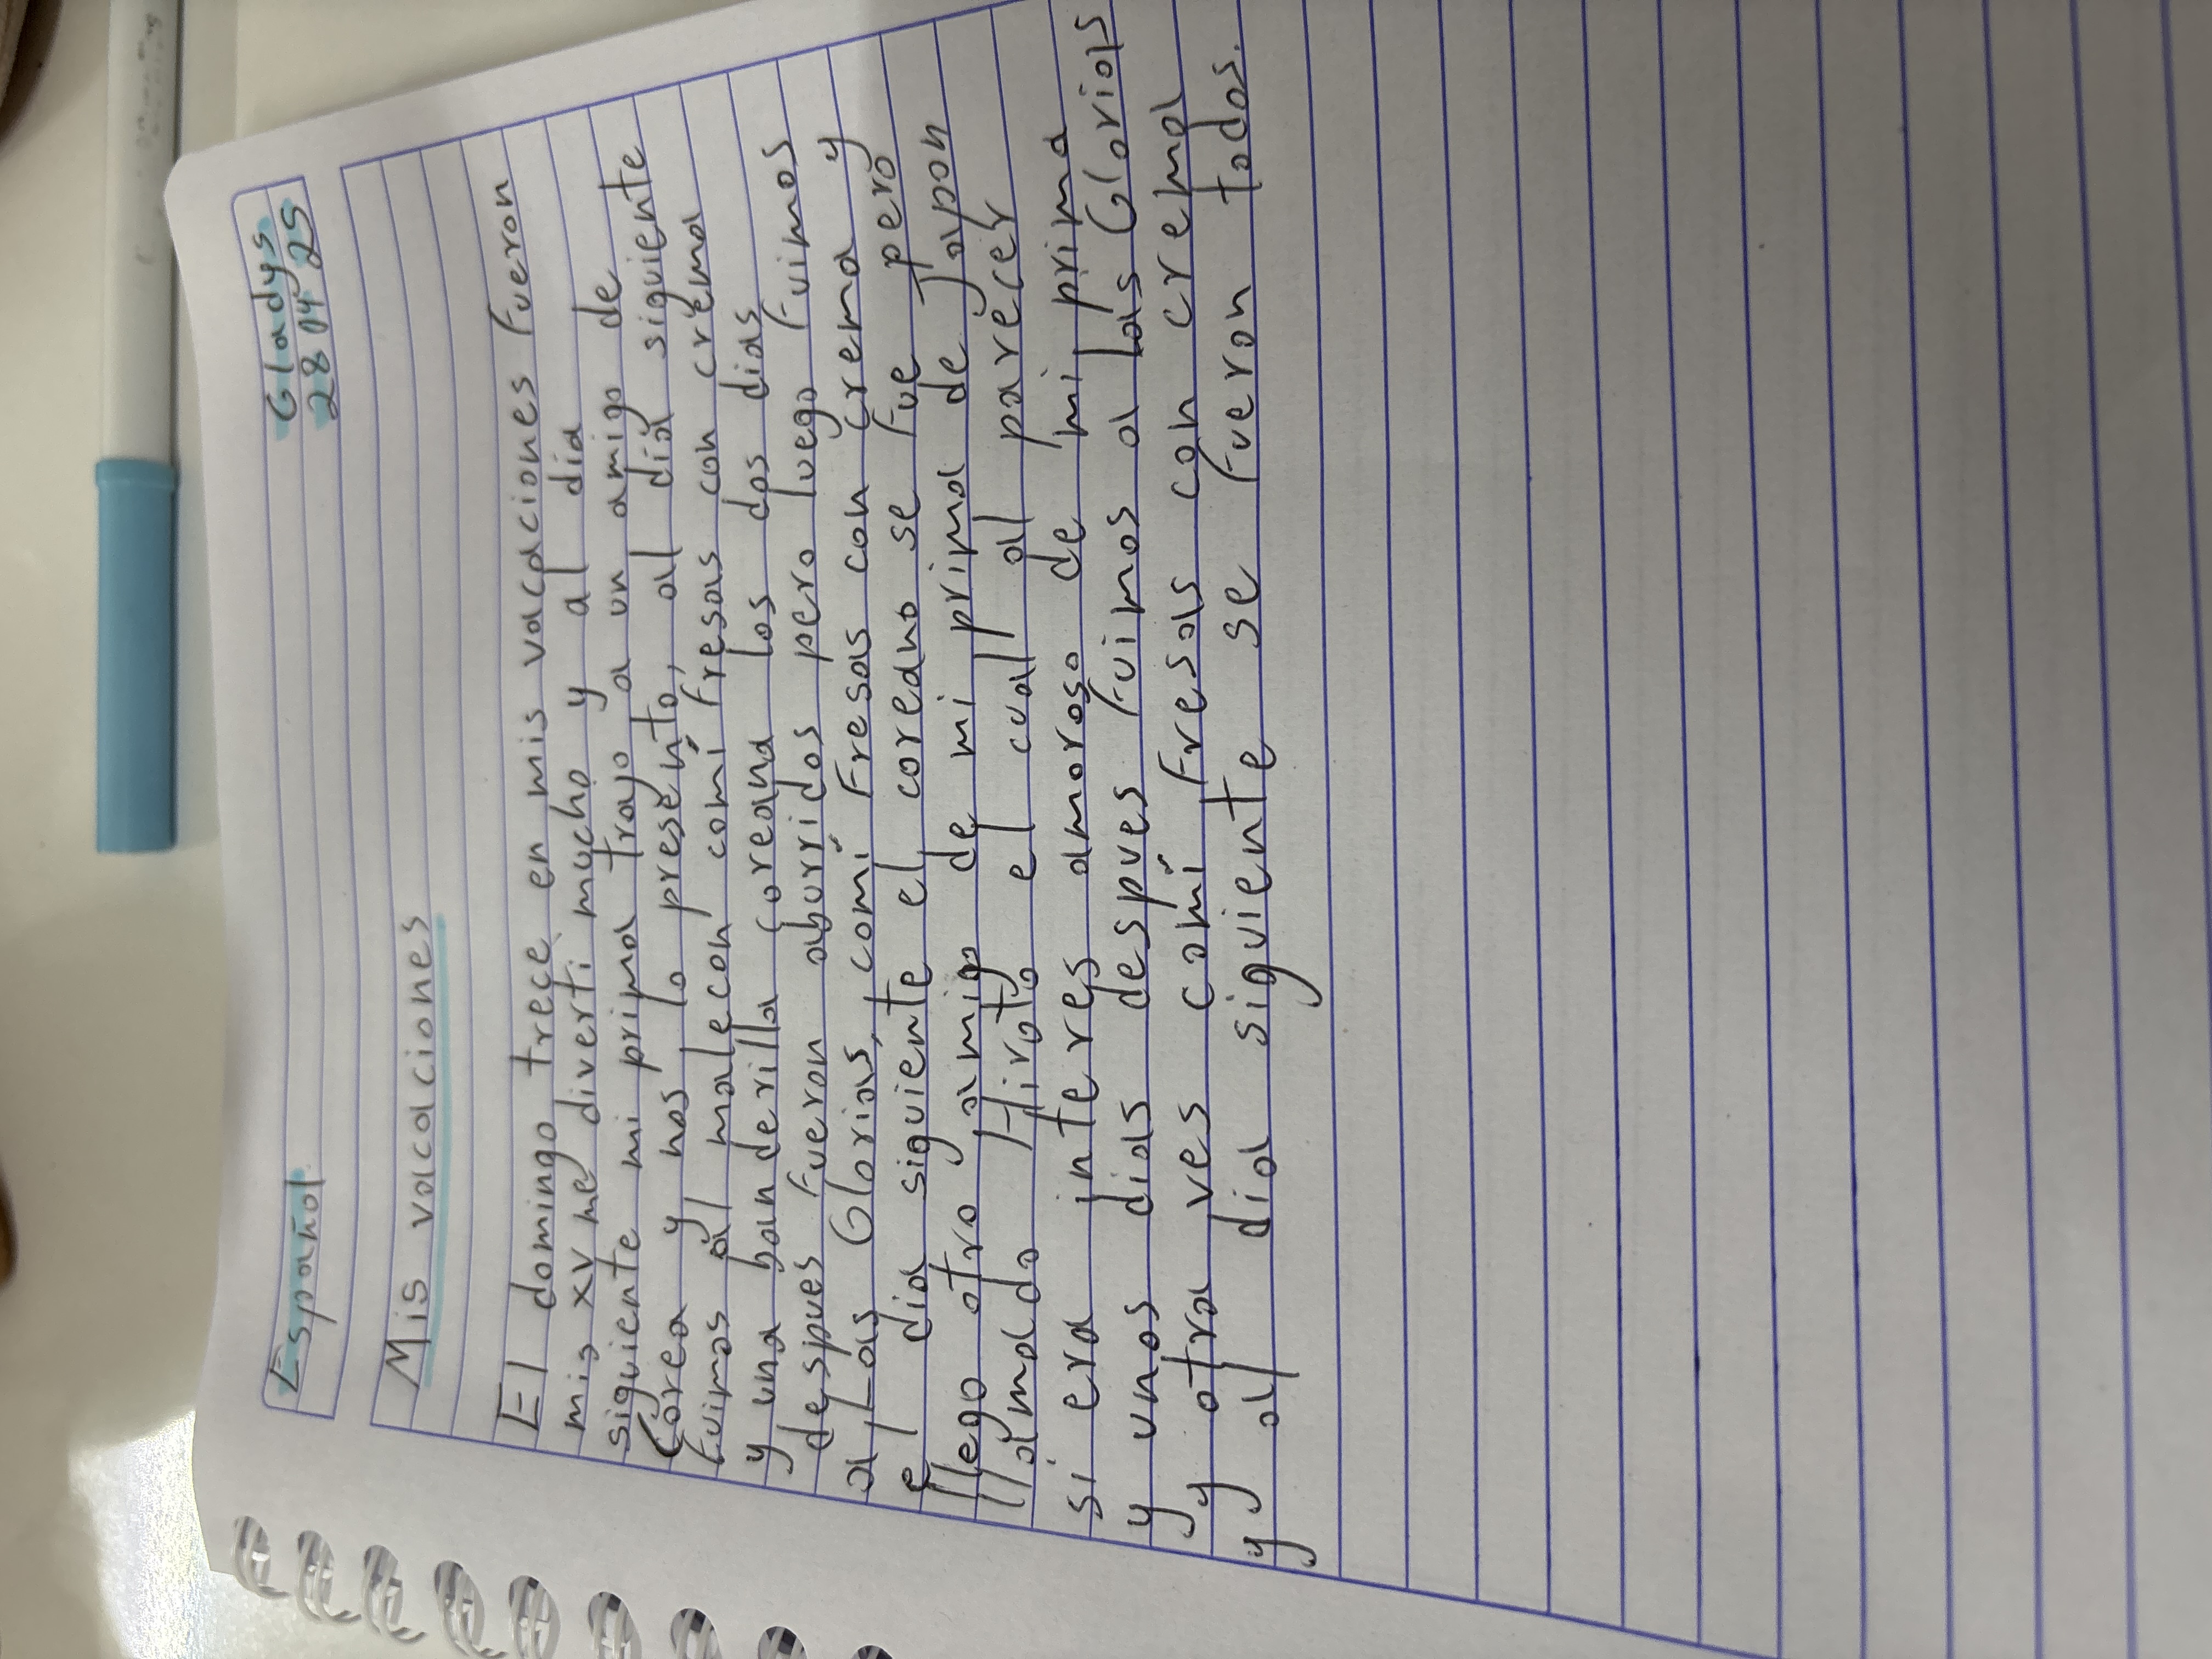 Español
Gladys
28 04 25
Mis vacaciones
El domingo trece en mis vacaciones fueron
mis xv me diverti mucho y al dia
siguiente mi prima trajo a un amigo de
Corea y nos lo presento, al dia siguiente
fuimos al malecon comi fresas con crema
y una banderilla coreana los dos dias
despues fueron aburridos pero luego fuimos
a Las Glorias, comí fresas con crema y
el dia siguiente el coreano se fue pero
llego otro amigo de mi prima de japon
llamado Hiroto el cual al parecer
si era interes amoroso de mi prima
y unos dias despues fuimos a las Glorias
y otra ves comí fresas con crema
y al dia siguiente se fueron todos.